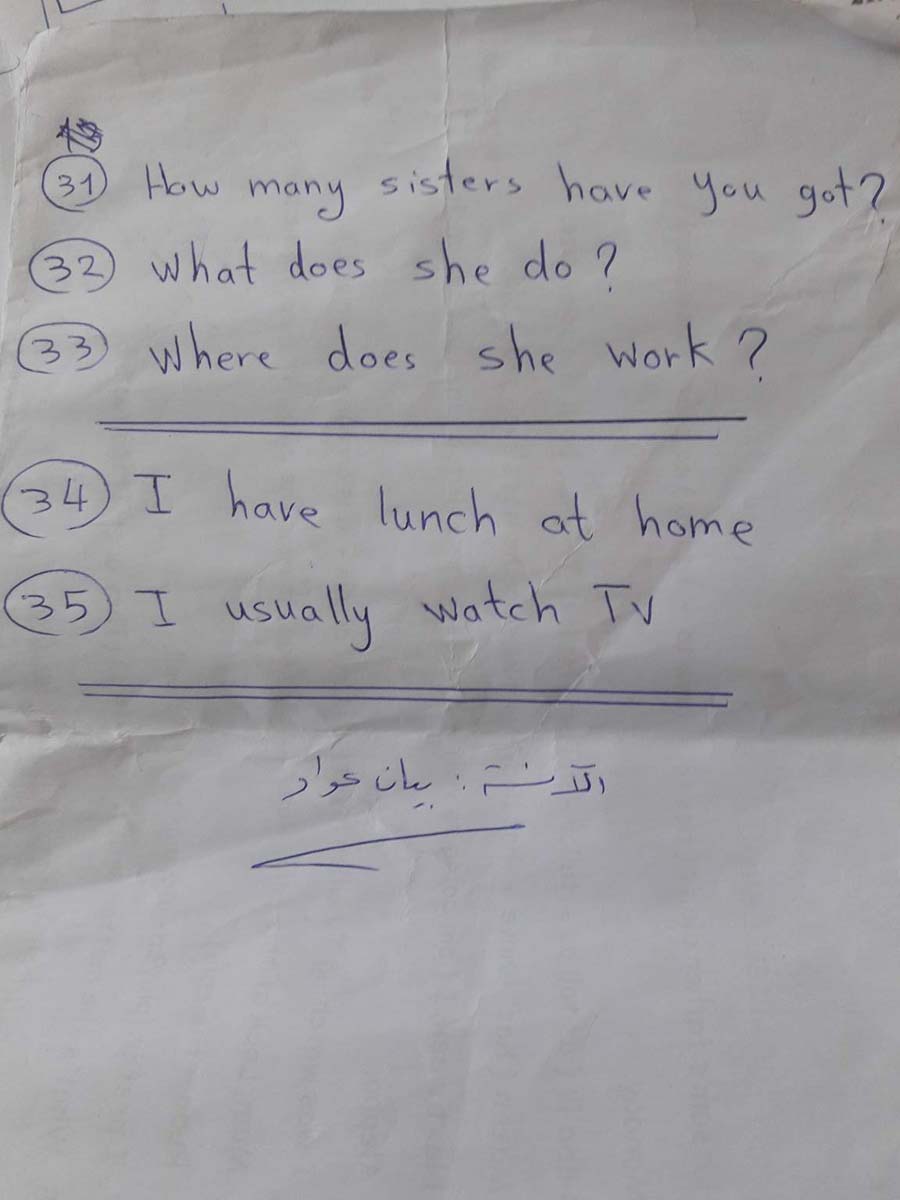 31 How many sisters have you got?
32 What does she do?
33 Where does she work?
34 I have lunch at home
35 I usually watch Tv
الآنسة : بيان عواد